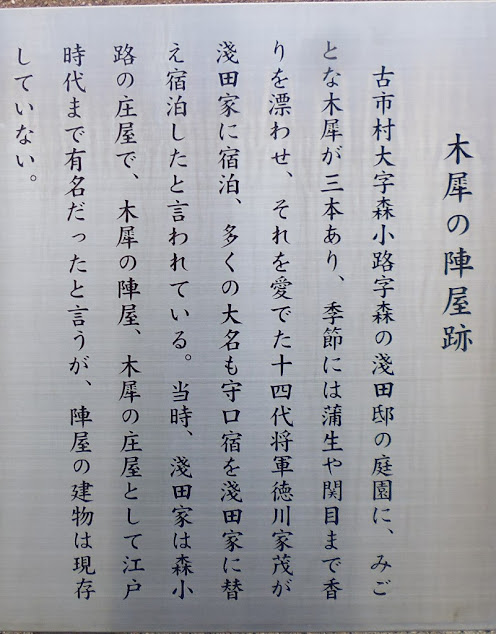 木犀の陣屋跡
古市村大字森小路字森の淺田邸の庭園に、みご
とな木犀が三本あり、季節には蒲生や関目まで香
りを漂わせ、それを愛でた十四代将軍徳川家茂が
淺田家に宿泊、多くの大名も守口宿を淺田家に替
え宿泊したと言われている。当時、淺田家は森小
路の庄屋で、木犀の陣屋、木犀の庄屋として江戸
時代まで有名だったと言うが、陣屋の建物は現存
していない。